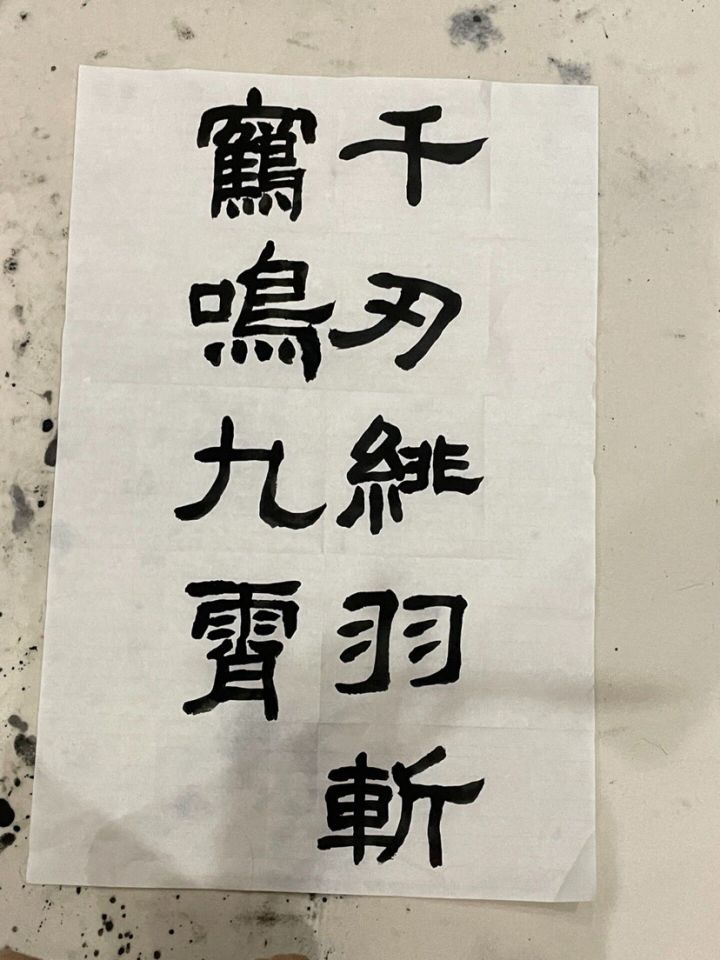 千刃緋羽斬
鶴鳴九霄